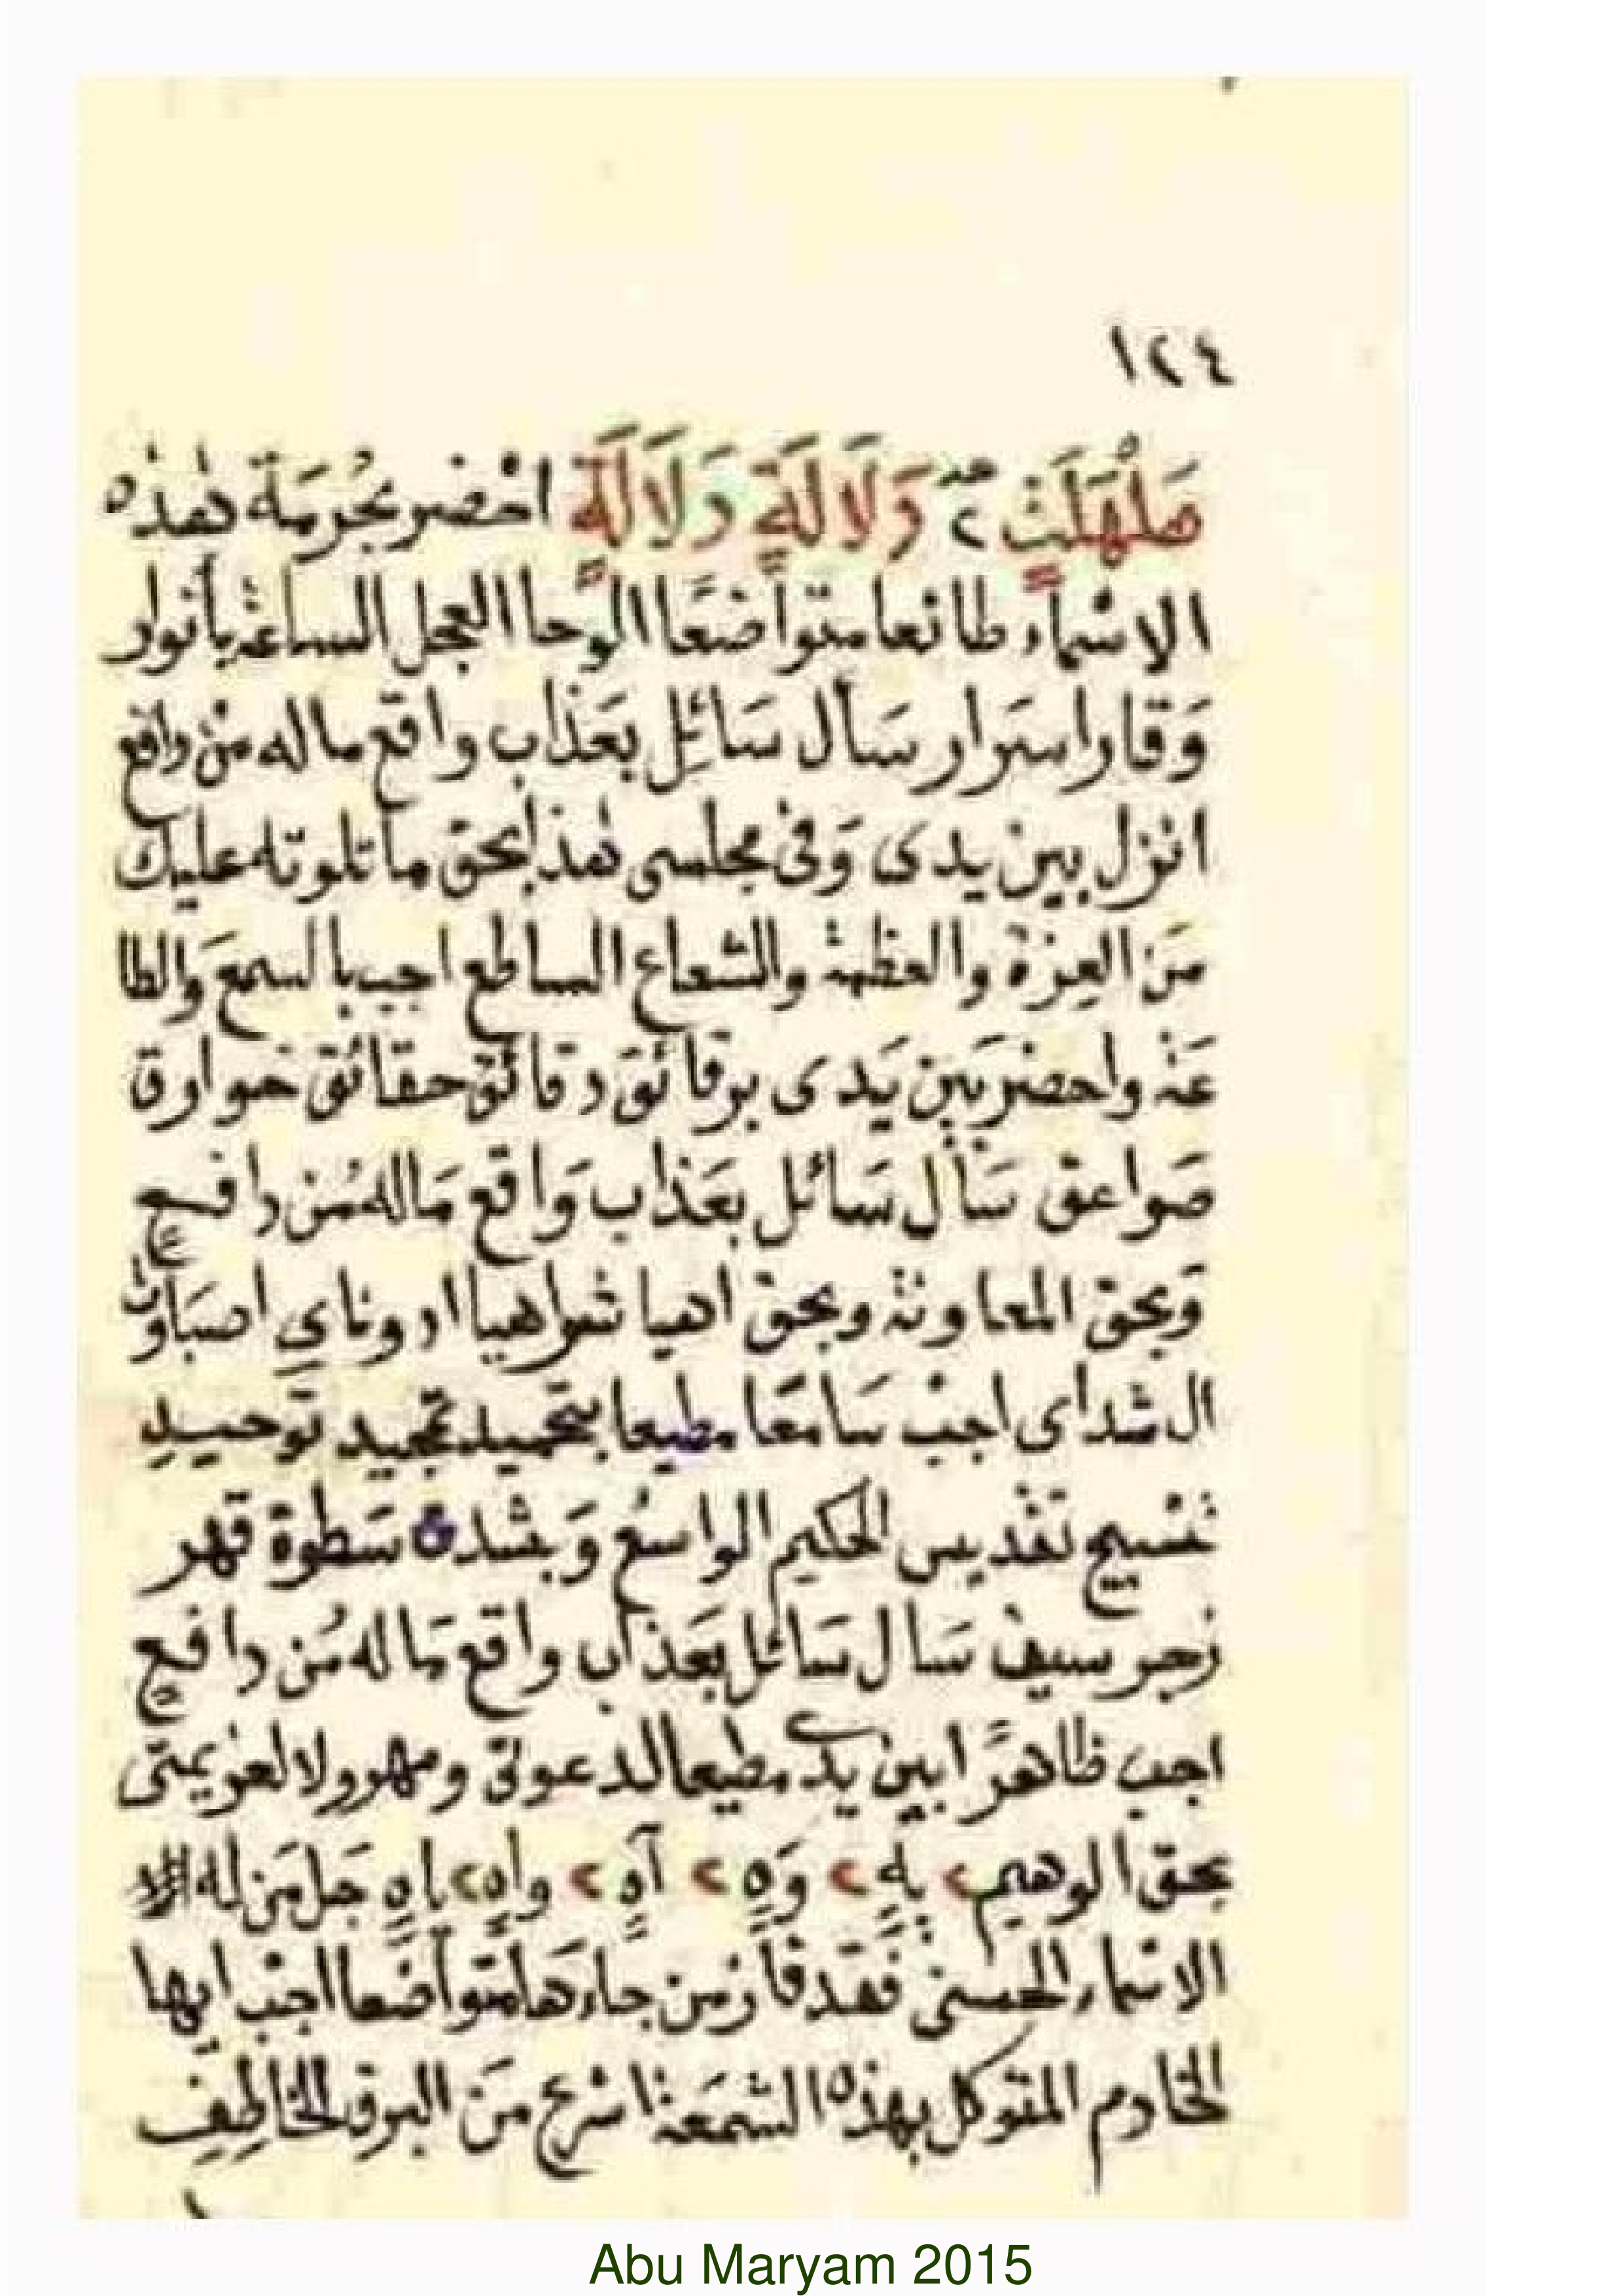 ١٢٤
صَلْهَلَتٍ ٢ دَلَالَةٍ دَلَالَةٍ احضر بحُرمَة هذه
الاسْماء طائعا متواضعًا الوحا العجل الساعة بأنوار
وَقار اسرَار سَأل سَائِل بعَذاب واقع ماله منْ دافع
انْزل بين يدى وَفى مجلسى هذا بحق ما تلوته عليك
مَن العِزة والعظمة والشعاع الساطع اجب بالسمع وَالطا
عَة واحضر بَين يَدى برقائق دقائق حقائق خوارق
صَواعق سَأل سَائل بعَذاب وَاقع مَاله مُن دافع
وَبحق المعاونة وبحق اهيا شراهيا ادوناي اصبَاوُت
ال شداى اجب سَامعًا مطيعا بتحميد تمجيد توحيدِ
تسْبيح تقديس الحكيم الواسع وَبشدة سَطوة قهر
زجر سيف سَال سَائل بعَذاب واقع مَاله مُن دافعٍ
اجب ظاهرًا بين يدي مطيعا لدعوتى ومهرولا لعزيمتى
بحق الوهيم ٢ يهٍ ٢ وَهٍ ٢ آهٍ ٢ واهٍ ٢ ياهٍ جَل مَن له
الاسْماء الحسنى فقد فاز من جاءها متواضعا اجب ايها
الخادم المتوكل بهذه الشمعَة اسْرع مَن البرق الخَاطِفِ
Abu Maryam 2015